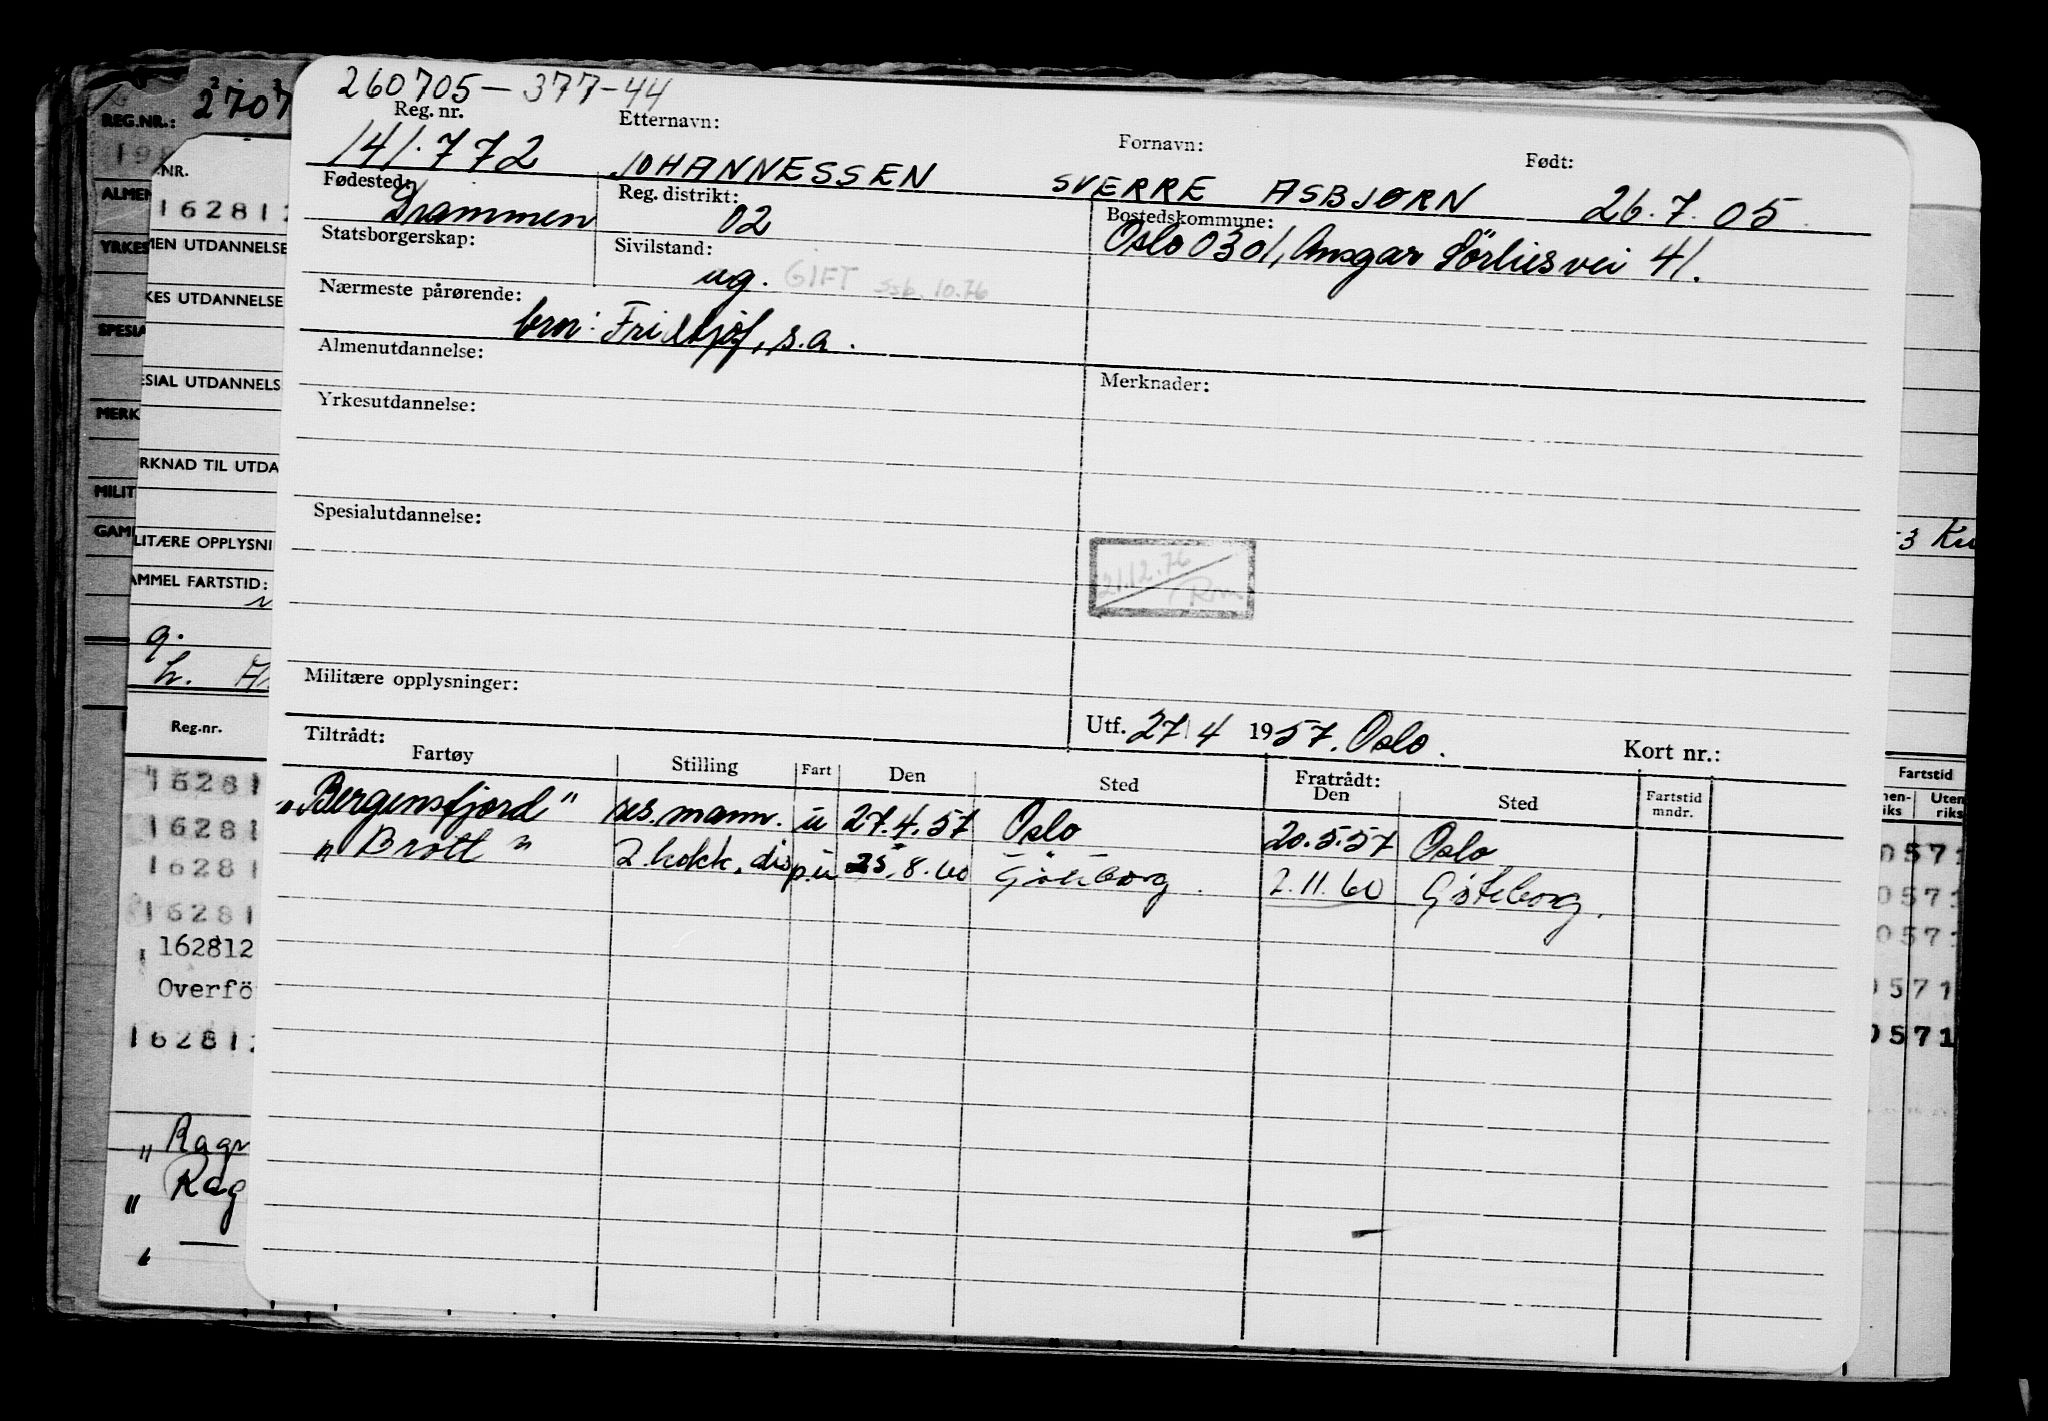 260705-377-44
Reg. nr. Etternavn: Fornavn: Født:
141.772 JOHANNESSEN SVERRE ASBJØRN 26.7.05.
Fødested: Drammen Reg. distrikt: 02 Bostedskommune:
Oslo 0301, Ansgar Sörlies vei 41.
Statsborgerskap: Sivilstand: ug. GIFT ssb. 10.76
Nærmeste pårørende: bror: Fridtjof, s.a.
Almenutdannelse: Merknader:
Yrkesutdannelse:
Spesialutdannelse:
21.12.76
Militære opplysninger:
Utf. 27/4 1957. Oslo. Kort nr.:
Tiltrådt: Fratrådt:
Fartøy Stilling Fart Den Sted Den Sted Fartstid mndr.
"Bergensfjord" res.mann. u 27.4.57 Oslo 20.5.57 Oslo
"Brott" 2.kokk, disp u 25.8.60 Göteborg. 2.11.60 Göteborg.
REG.NR.: 2707
NR.
162812
ALMEN
MEN UTDANNELSE
YRKES
KES UTDANNELSE
SPESIA
ESIAL UTDANNELS
MERK
RKNAD TIL UTDA
MILIT
LITÆRE OPPLYSNI
GAM
AMMEL FARTSTID:
g.
h.
Reg.nr.
16281
16281
16281
16281
162812
Overfö
162812
" Ragn
" Rag
"
3 Ku
Fartstid
nen-riks Uten riks
0571
0571
0571
0571
0571